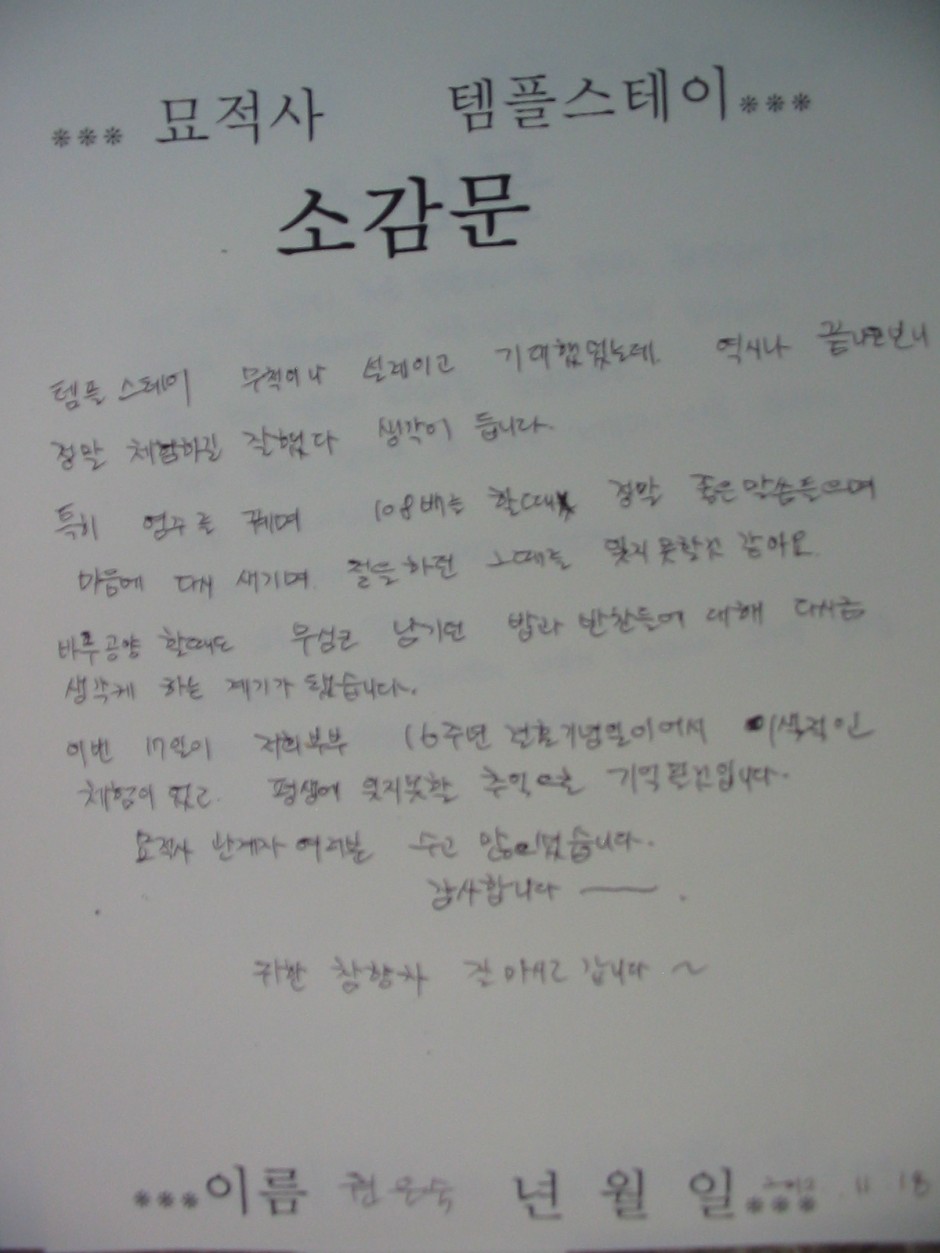 ***묘적사 템플스테이***
소감문
템플스테이 무척이나 설레이고 기대했었는데. 역시나 끝나고보니
정말 체험하길 잘했다 생각이 듭니다.
특히 염주를 꿰며 108배를 할때 정말 좋은말씀들으며
마음에 다시 새기며. 절을하던 그때를 잊지못할것 같아요.
바루공양 할때도 무심코 남기던 밥과 반찬들에 대해 다시금
생각케 하는 계기가 됐습니다.
이번 17일이 저희부부 16주년 결혼기념일이어서 이색적인
체험이 었고. 평생에 잊지못할 추억으로 기억될것입니다.
묘적사 관계자 여러분 수고 많이었습니다.
감사합니다 ——.
귀한 참향차 잘 마시고 갑니다 ~
***이름 권은숙 년 월 일*** 2012. 11 18